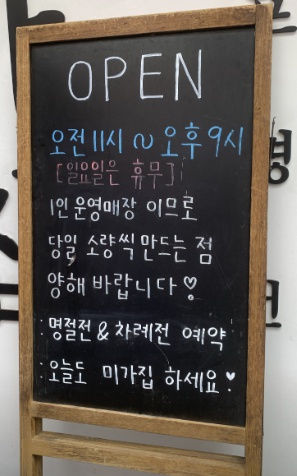 OPEN
오전 11시 ~ 오후 9시
[일요일은 휴무]
1인 운영매장 이므로
당일 소량씩 만드는 점
양해 바랍니다♡
: 명절전 & 차례전 예약
: 오늘도 미가집 하세요♥